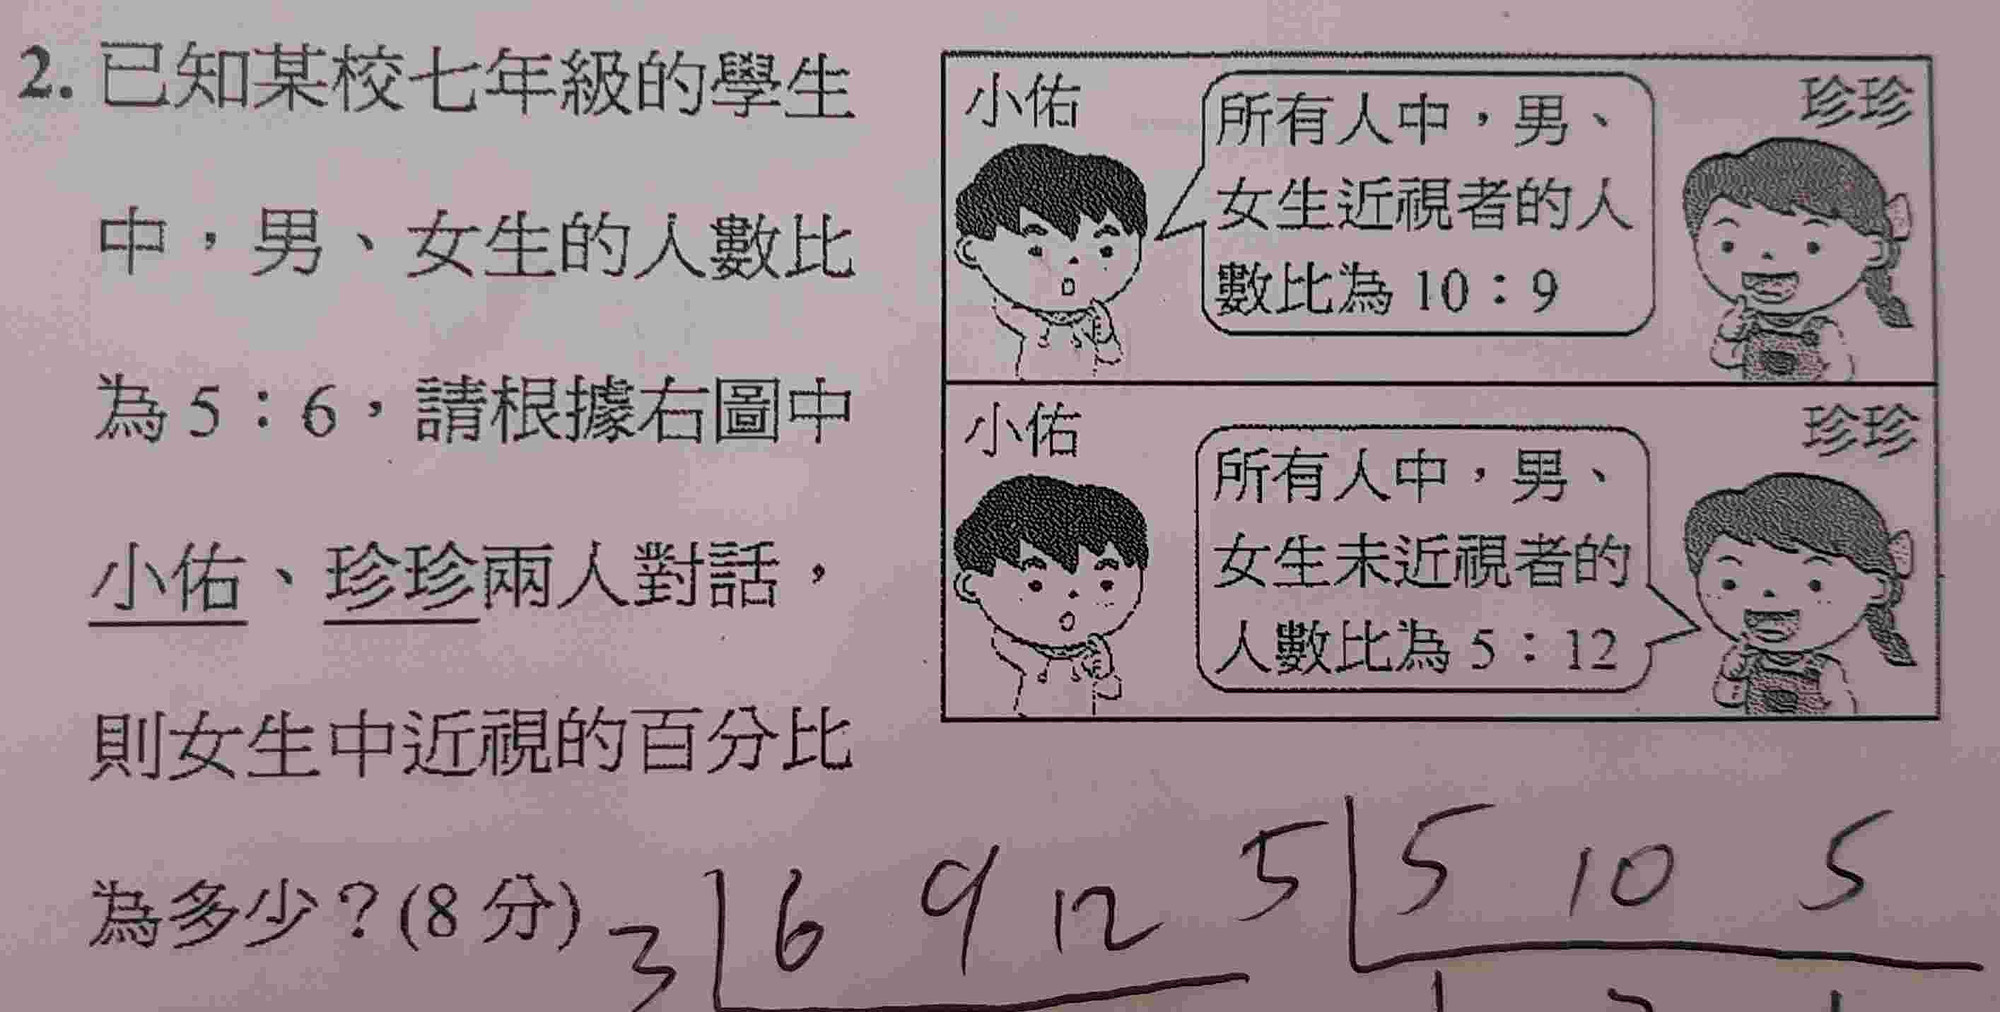 2. 已知某校七年級的學生
中，男、女生的人數比
為 5：6，請根據右圖中
小佑、珍珍兩人對話，
則女生中近視的百分比
為多少？(8 分)
小佑
珍珍
所有人中，男、
女生近視者的人
數比為 10：9
小佑
珍珍
所有人中，男、
女生未近視者的
人數比為 5：12
3 6 9 12
5 5 10 5